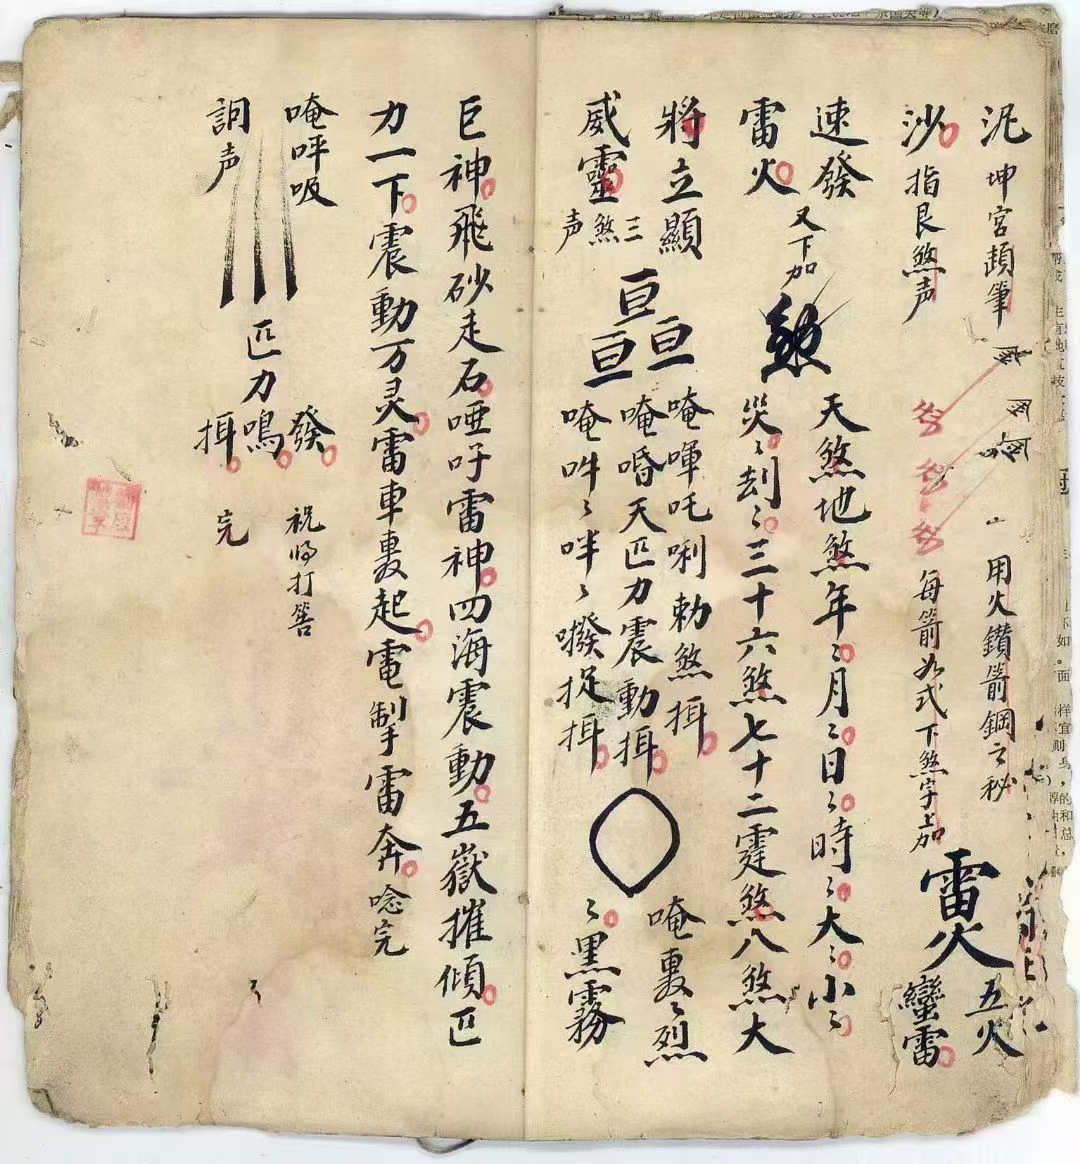 坤宮顛筆
用火鑽箭鋼之秘
沙指艮煞声
每箭如式下煞字加
雷火
五火
蠻雷
速發
雷火
又下加
煞
天煞地煞年〻月〻日〻時〻大〻小〻
災〻刦〻三十六煞七十二霆煞八煞大
將立顯
威靈
三煞声
亘
亘亘
唵㖇吒唎勅煞挕
唵唔天匹力震動挕
唵吽〻吽〻撥捉挕
唵轟〻烈
〻黑霧
巨神飛砂走石哑吁雷神四海震動五嶽摧傾匹
力一下震動万灵雷車轟起電掣雷奔唸完
唵呼吸
詞声
匹力
發
鳴
挕
祝将打答
完